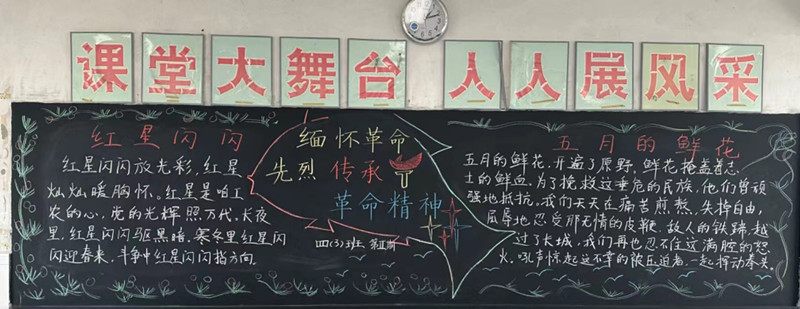 课堂大舞台 人人展风采
红星闪闪
红星闪闪放光彩,红星
灿灿暖胸怀。红星是咱工
农的心,党的光辉照万代。长夜
里,红星闪闪驱黑暗,寒冬里红星闪
闪迎春来,斗争中红星闪闪指方向。
缅怀革命
先烈 传承
革命精神
四(3)班 第五期
五月的鲜花
五月的鲜花,开遍了原野,鲜花掩盖着志
士的鲜血,为了挽救这垂危的民族,他们曾顽
强地抵抗,我们天天在痛苦煎熬,失掉自由,
屈辱地忍受那无情的皮鞭,敌人的铁蹄越
过了长城,我们再也忍不住这满腔的怒
火,吼声惊起这不幸的 一起挥动拳头。